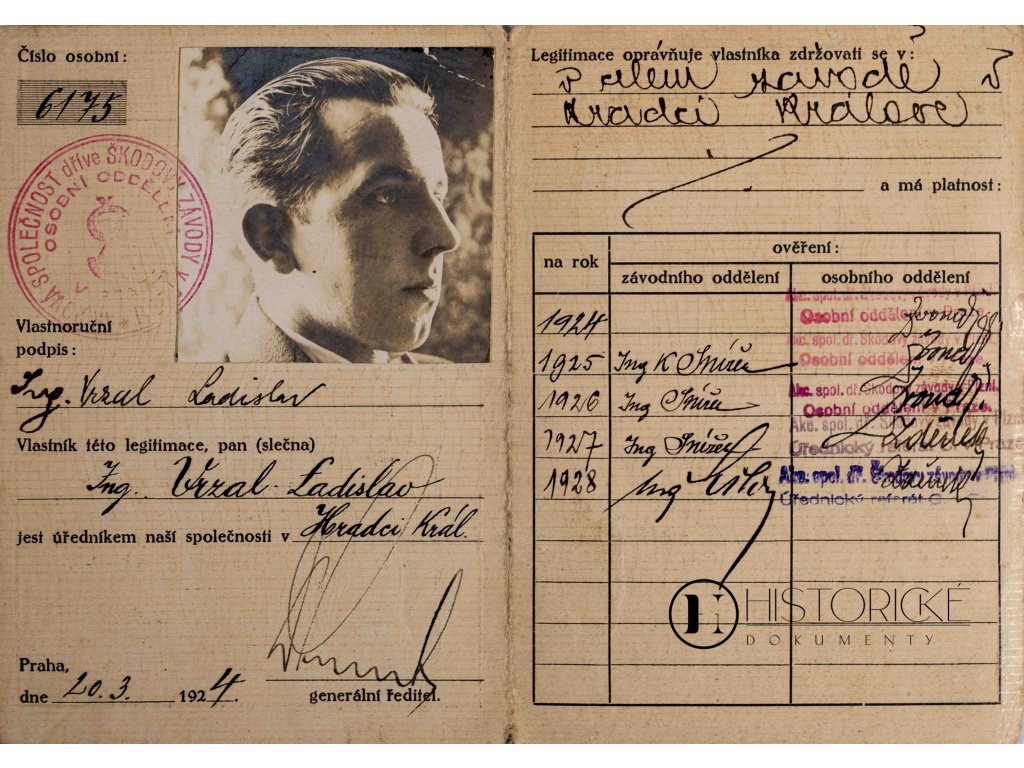 Číslo osobní:
6175
AKCIOVÁ SPOLEČNOST dříve ŠKODOVY ZÁVODY V
OSOBNÍ ODDĚLENÍ
Vlastnoruční
podpis:
Ing. Vrzal Ladislav
Vlastník této legitimace, pan (slečna)
Ing. Vrzal Ladislav
jest úředníkem naší společnosti v Hradci Král.
Praha,
dne 20.3. 1924.
generální ředitel.
Legitimace opravňuje vlastníka zdržovati se v:
v celém závodě v
Hradci Králové
a má platnost:
na rok
ověření:
závodního oddělení
osobního oddělení
1924
Akc. spol. dř. Škodovy závody v Plzni
Osobní oddělení
1925 Ing K
Akc. spol. dř. Škodovy závody v Plzni
Osobní oddělení
1926 Ing
Akc. spol. dř. Škodovy závody v Plzni.
Osobní oddělení v Praze.
1927 Ing
Akc. spol. dř. Škodovy závody v Plzni
Úřednický referát G. Praze
1928 Ing
Akc. spol. dř. Škodovy závody v Plzni
Úřednický referát G.
HISTORICKÉ
DOKUMENTY